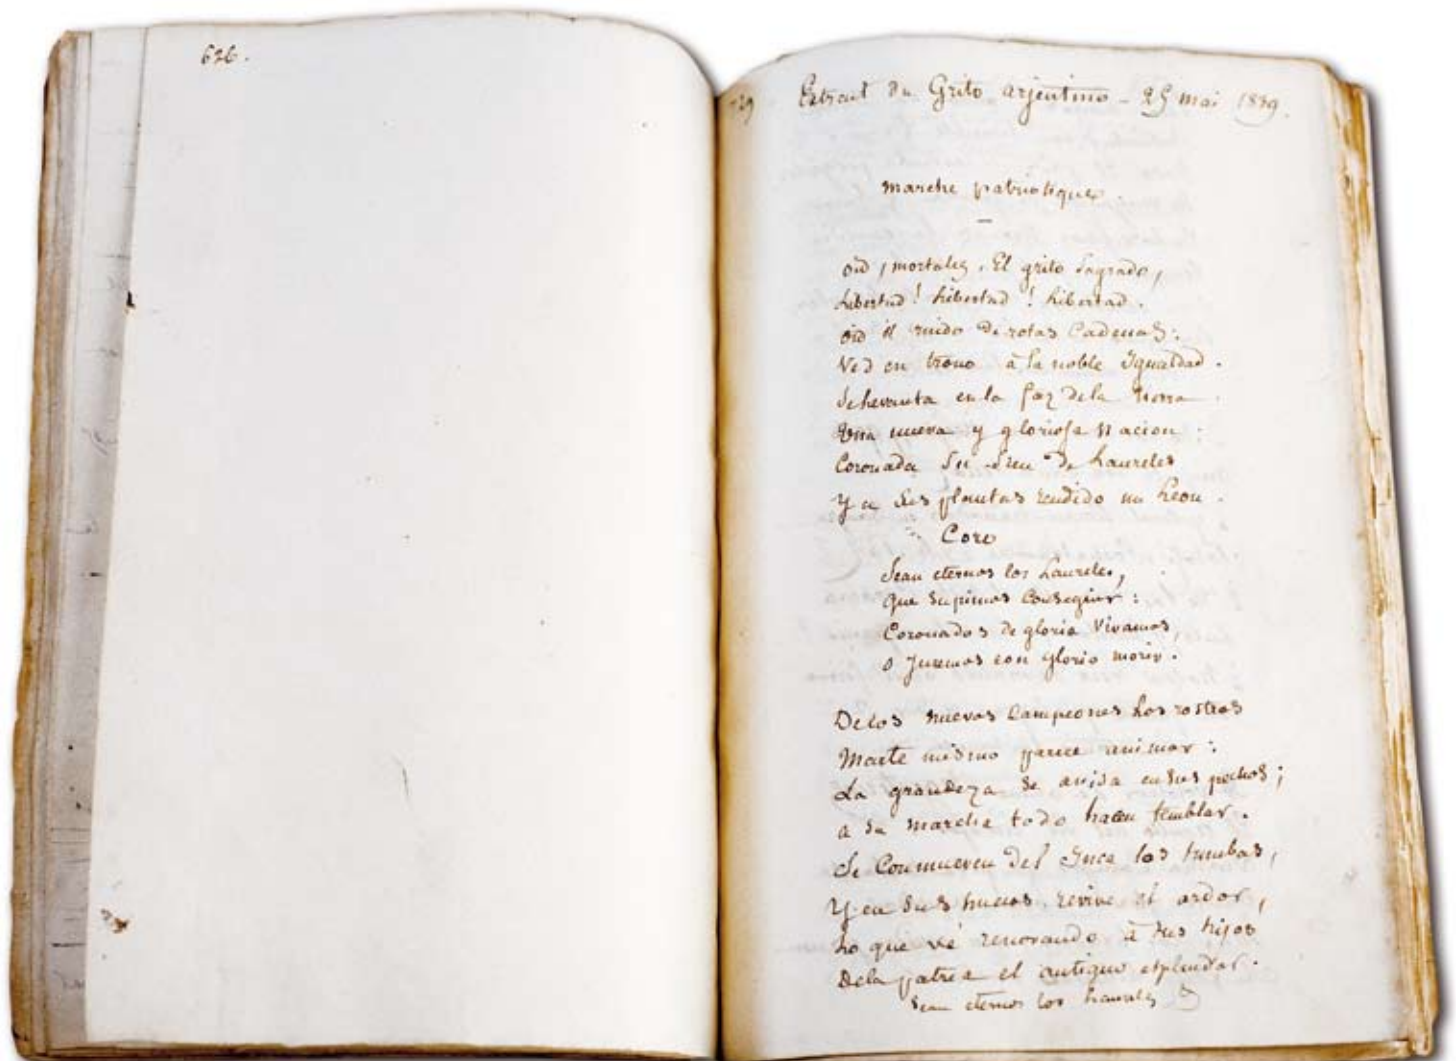 626.
Extrait du Grito argentino - 25 mai 1839.
marche patriotique
oid, mortales, El grito Sagrado,
Libertad! Libertad! Libertad.
oid el ruido de rotas Cadenas:
Ved en trono à la noble Igualdad.
Se Levanta en la faz dela tierra
Una nueva y gloriosa Nacion:
Coronada Su Sien de Laureles
Y a Sus plantas rendido un Leon.
Coro
Sean eternos los Laureles,
Que Supimos Conseguir:
Coronados de gloria Vivamos,
O Juremos con gloria morir.
Delos nuevos Campeones Los rostros
Marte mismo parece animar:
La grandeza se anida en sus pechos;
a su marcha todo hacen temblar.
Se Conmueven del Inca las tumbas,
Y en Sus huesos revive el ardor,
Lo que vé renovando à sus hijos
Dela patria el antiguo esplendor.
Sean eternos los Laureles